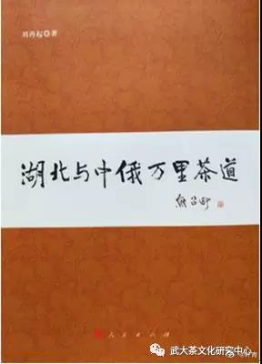 刘再起◎著
湖北与中俄万里茶道
人民出版社
武大茶文化研究中心